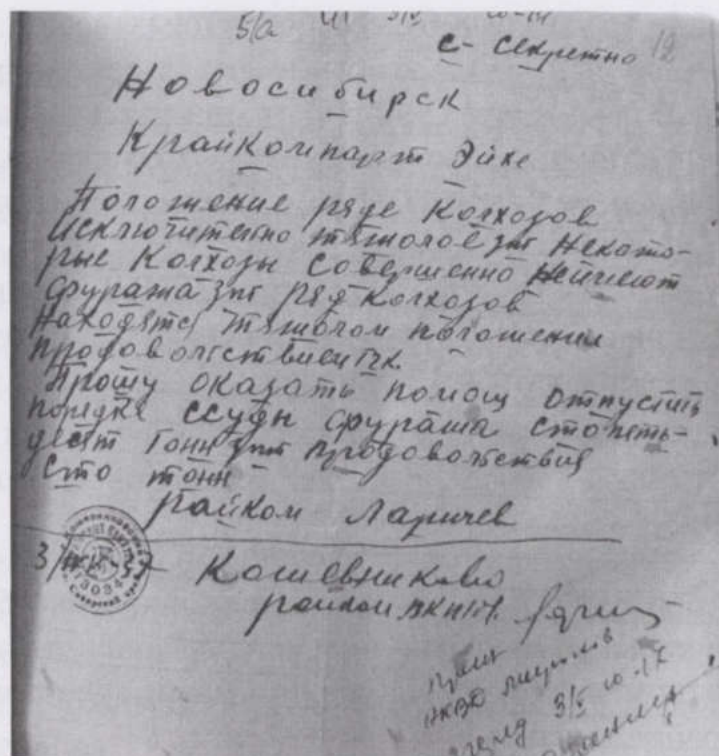 5/а
с-секретно 12
Новосибирск
Крайкомпарт Эйхе
Положение ряде Колхозов
исключительно тяжолое зпт Некото-
рые Колхозы Совершенно Неимеют
фуража зпт ряд колхозов
находятся тяжолом положении
продовольствием тчк
Прошу оказать помощ отпустить
порядке ссуды фуража стопять-
десят тонн зпт продовольствия
Сто тонн
райком Ларичев
Кошевниково
райком ВКП/б/.
НКВД
3/V 10-17